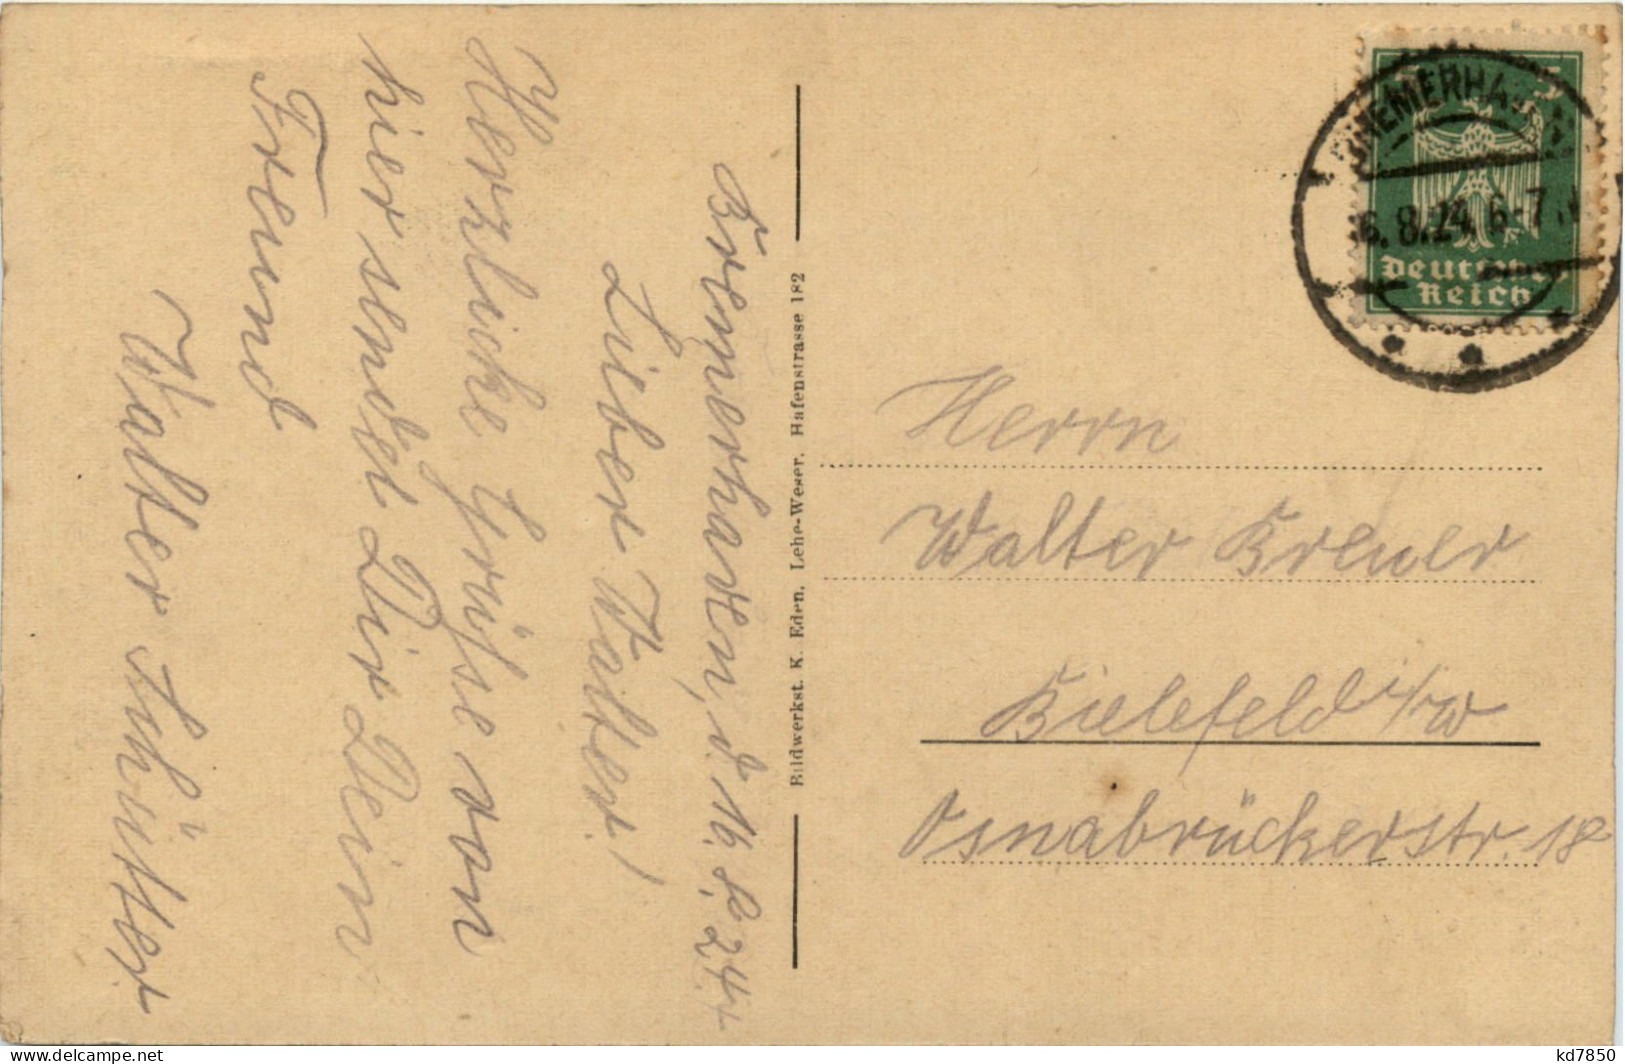 Bremerhaven, d. 16. 8. 24.
Lieber Walter!
Herzliche Grüße von
hier sendet Dir Dein
Freund
Walter Schütter
Bildwerkst. K. Eden, Lehe-Weser. Hafenstrasse 182
BREMERHAVEN
16.8.24. 6-7 N
5
Deutsches
Reich
Herrn
Walter Kreuer
Bielefeld i/W
Osnabrückerstr. 18
delcampe.net
kd7850